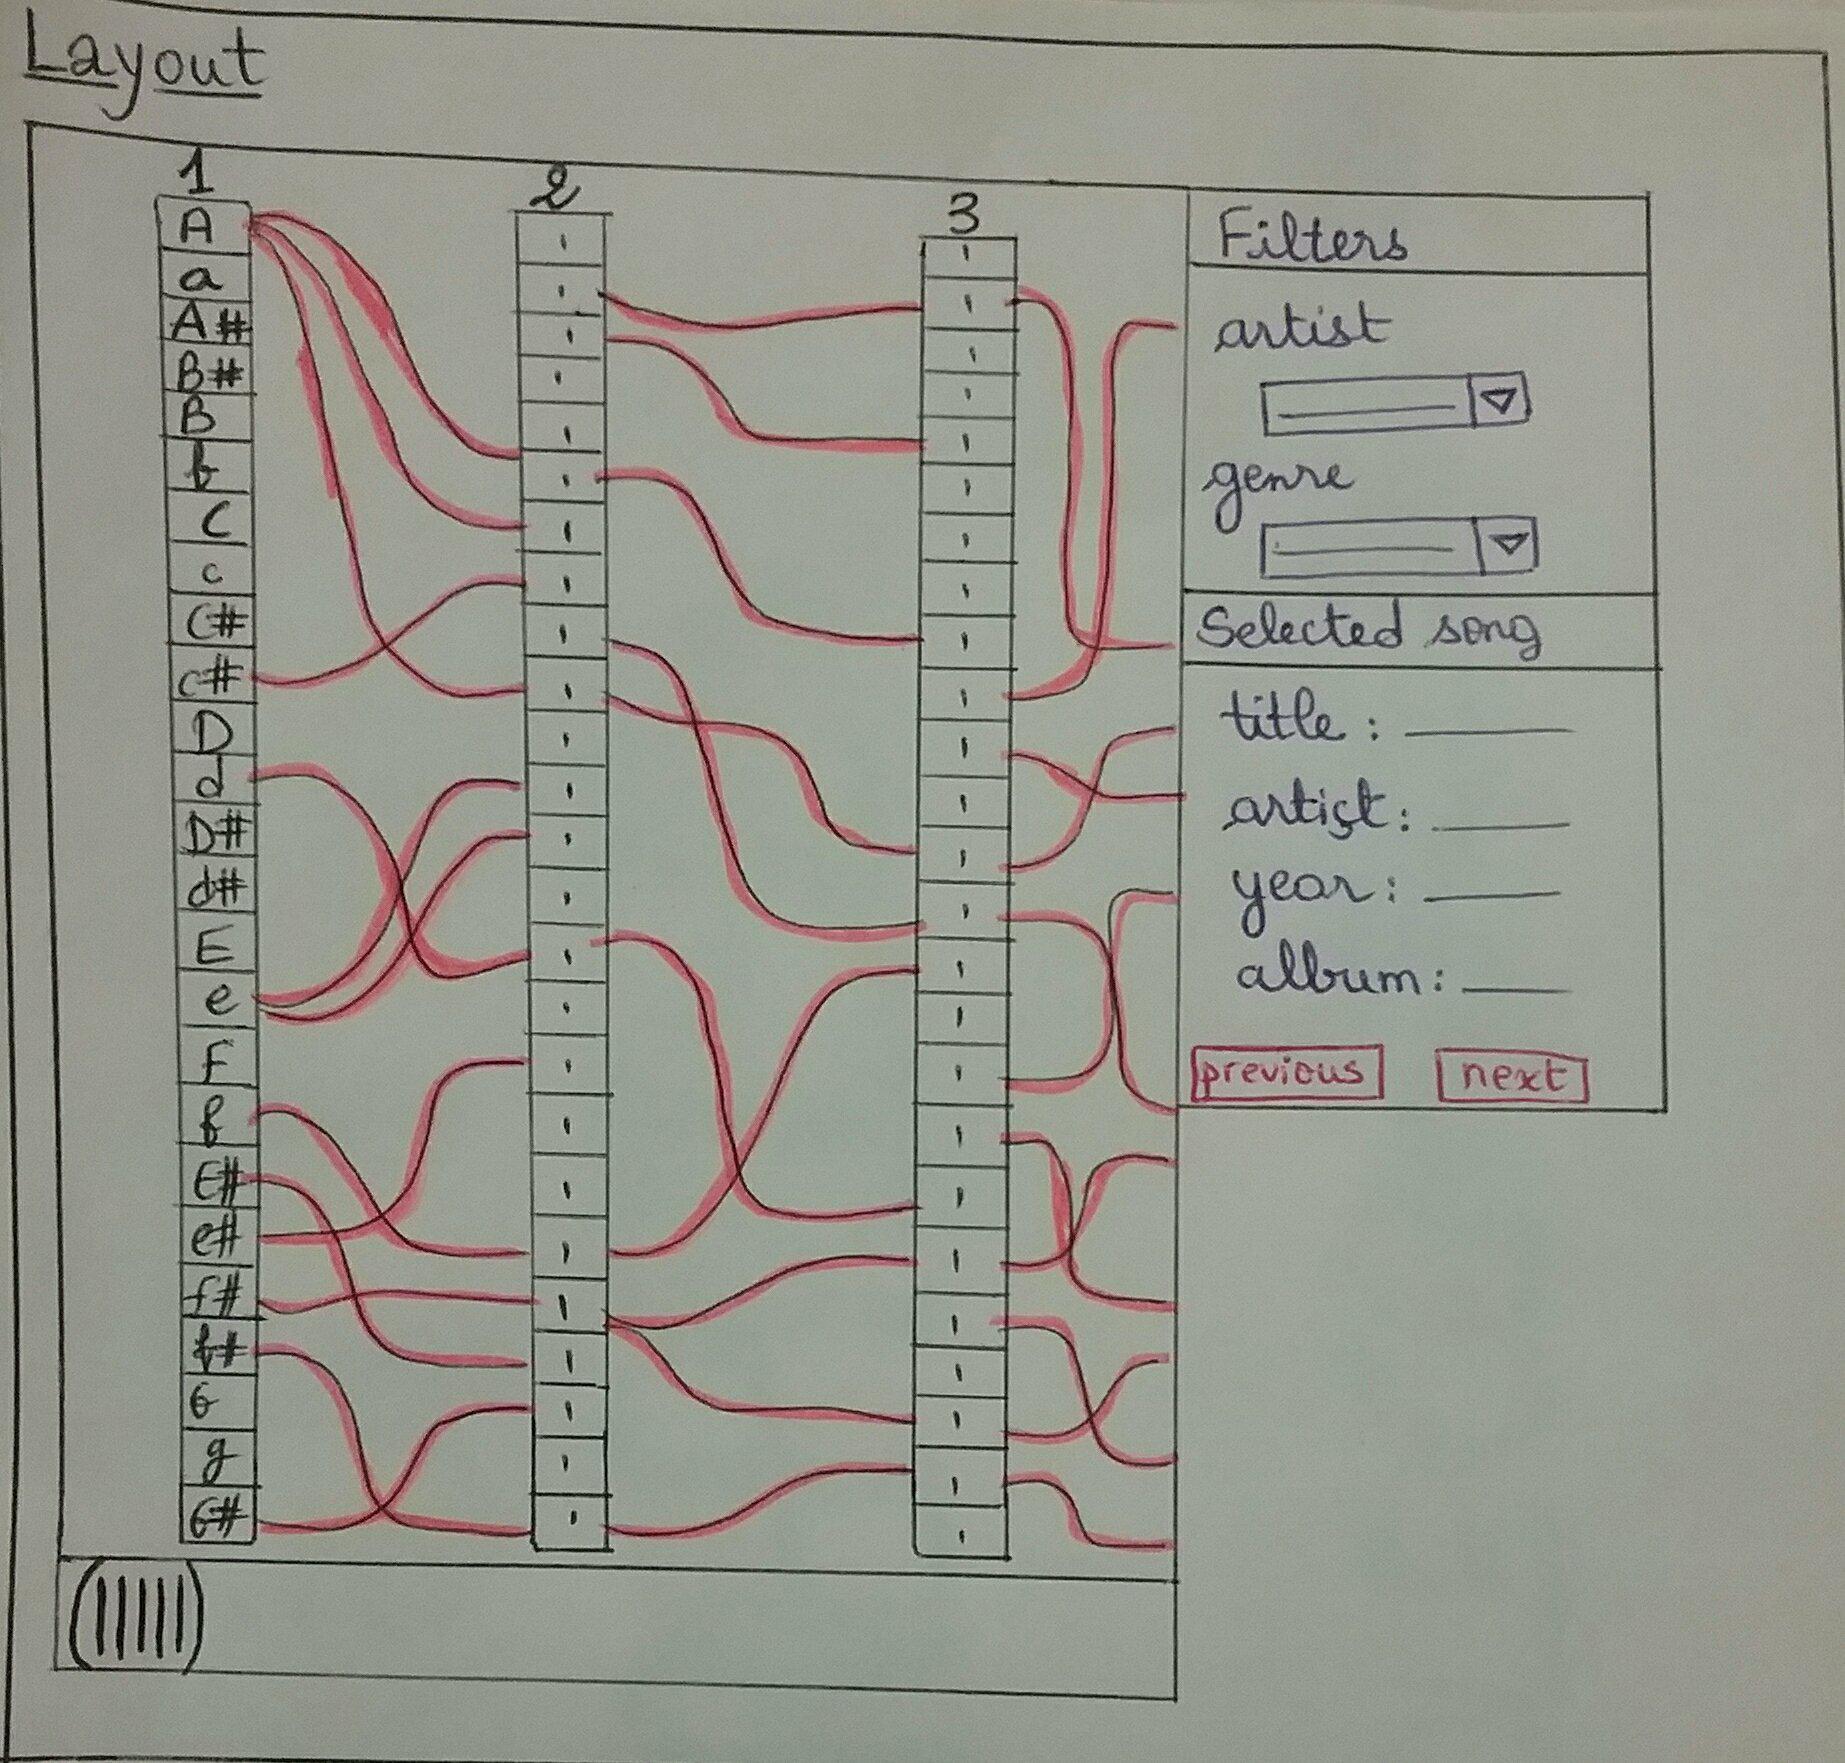 Layout
1
2
3
A
a
A#
B#
B
b
C
c
C#
c#
D
d
D#
d#
E
e
F
f
E#
e#
f#
f#
G
g
G#
Filters
artist
genre
Selected song
title:
artist:
year:
album:
previous next